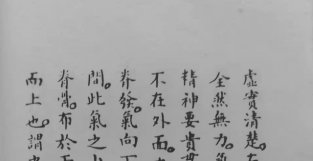 虛實清楚。
全然無力。
精神要貴貫
不在外面。
脊發。氣向下
間。此氣之
脊骨。布於
而上也。謂